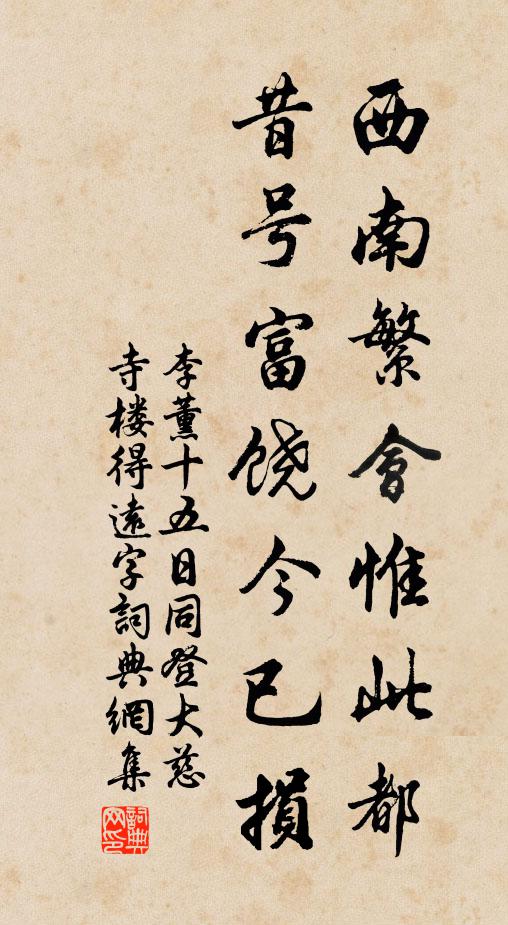 西南繁會惟此都
昔号富饶今已損
李薰十五日同登大慈
寺楼得遠字詞典網集
詞典网印